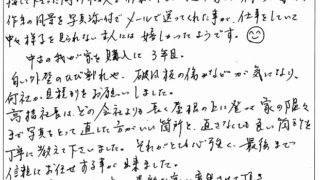 作業の風景を写真添付でメールで送ってくれた事が、仕事をしていて
中々様子を見られない主人には嬉しかったようです。
中古の我が家を購入し3年目。
白い外壁のひび割れや、破風板の傷みなどが気になり、
何社か見積りをお願いしました。
高橋社長は、どの会社よりも長く屋根の上に登って家の隅々
まで写真もとって直した方がいい箇所と、直さなくても良い箇所を
丁寧に教えて下さいました。それがとても心強く、最後まで
信頼しお任せする事が出来ました。